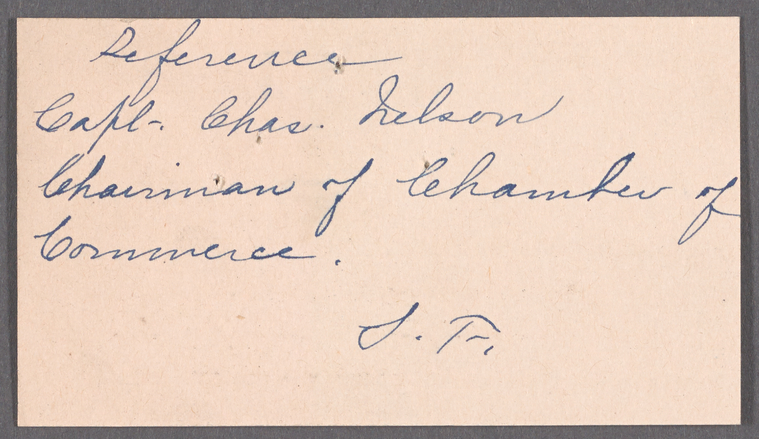 Reference
Capt. Chas. Nelson
Chairman of Chamber of
Commerce.
S. Fr.